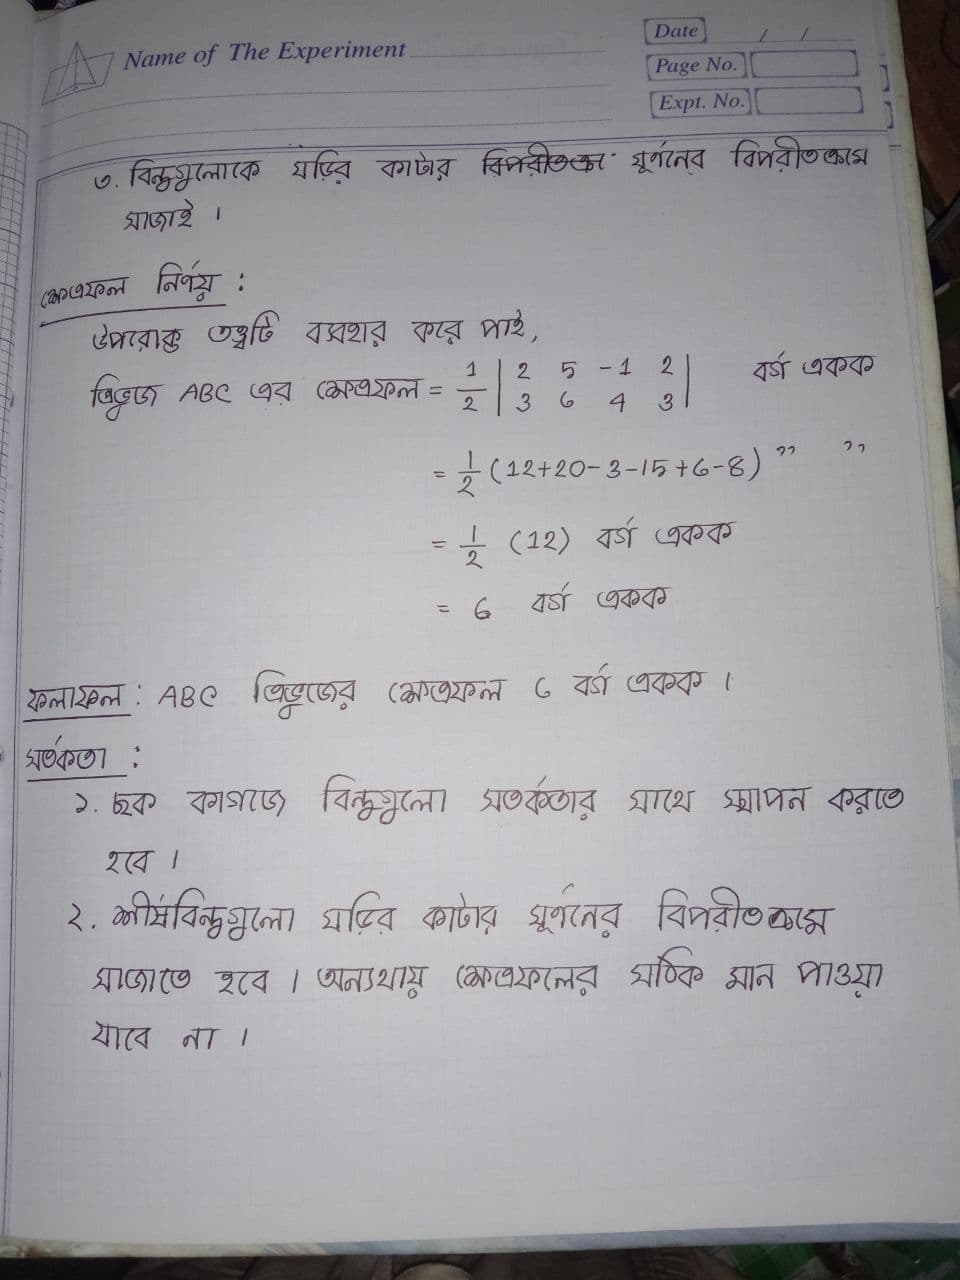 Name of The Experiment
Date / /
Page No.
Expt. No.
৩. বিন্দুগুলোকে ঘড়ির কাটার বিপরীতক্র ঘূর্ণনের বিপরীতক্রমে
সাজাই ।
ক্ষেত্রফল নির্ণয় :
উপরোক্ত তত্ত্বটি ব্যবহার করে পাই,
ত্রিভুজ ABC এর ক্ষেত্রফল = 1/2 | 2 5 -1 2 | বর্গ একক
3 6 4 3
= 1/2 (12+20-3-15+6-8) " "
= 1/2 (12) বর্গ একক
= 6 বর্গ একক
ফলাফল : ABC ত্রিভুজের ক্ষেত্রফল 6 বর্গ একক ।
সর্তকতা :
১. ছক কাগজে বিন্দুগুলো সতর্কতার সাথে স্থাপন করতে
হবে ।
২. শীর্ষবিন্দুগুলো ঘড়ির কাটার ঘূর্ণনের বিপরীতক্রমে
সাজাতে হবে । অন্যথায় ক্ষেত্রফলের সঠিক মান পাওয়া
যাবে না ।